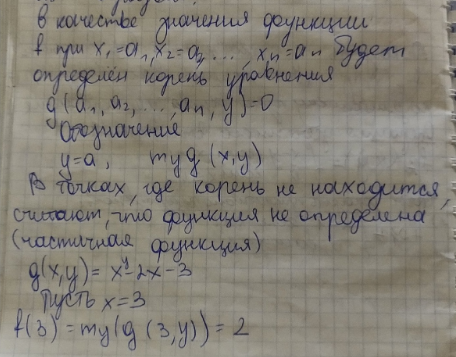 в качестве значения функции
f при x₁=a₁, x₂=a₂, ..., xₙ=aₙ будет
определён корень уравнения
g(a₁, a₂, ..., aₙ, y)=0
Обозначение
y=a, myg(x,y)
В точках, где корень не находится,
считают, что функция не определена
(частичная функция)
g(x,y)= xʸ-2x-3
Пусть x=3
f(3)=my(g(3,y))=2